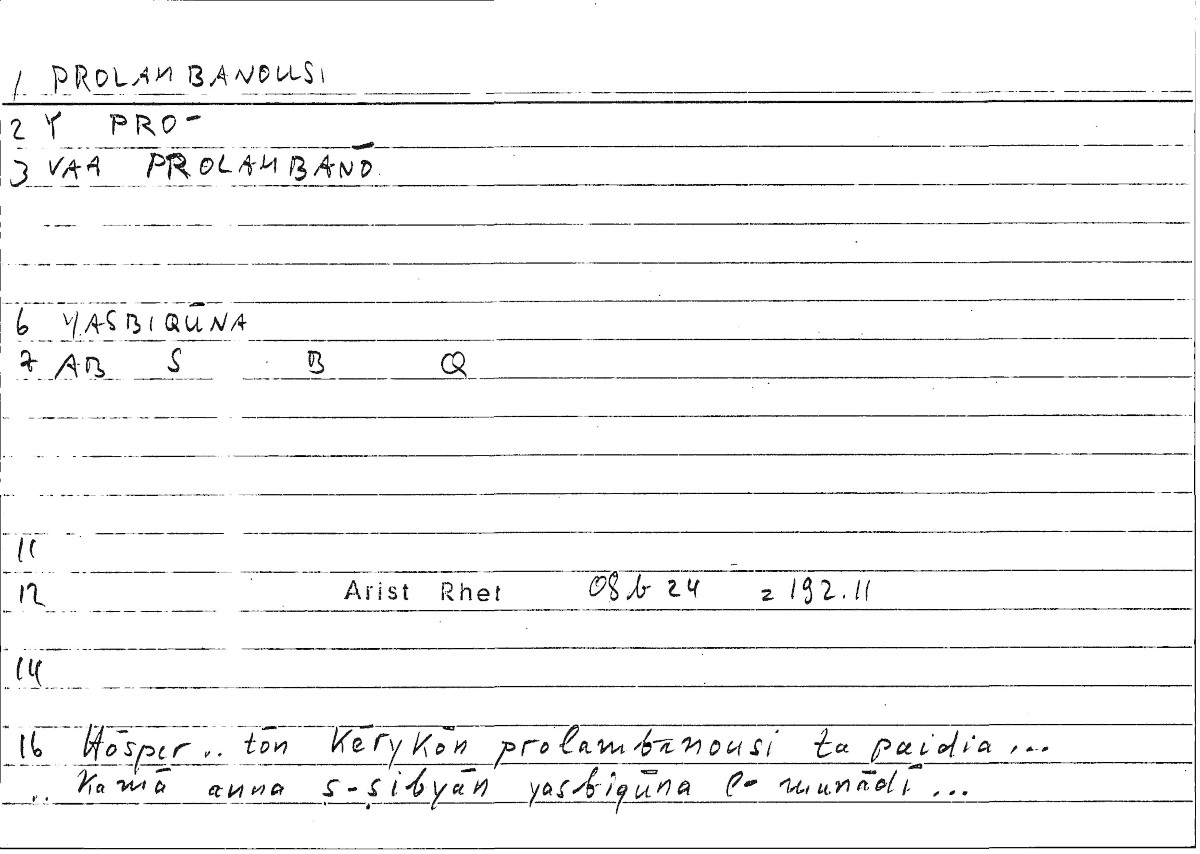 1 PROLAMBANOUSI
2 Y PRO-
3 VAA PROLAMBANŌ
6 YASBIQŪNA
7 AB S B Q
11
12 Arist Rhet 08b 24 = 192.11
14
16 Hōsper .. tōn kērykōn prolambanousi ta paidia ...
.. kamā anna ṣ-ṣibyān yasbiqūna l- munādī ...